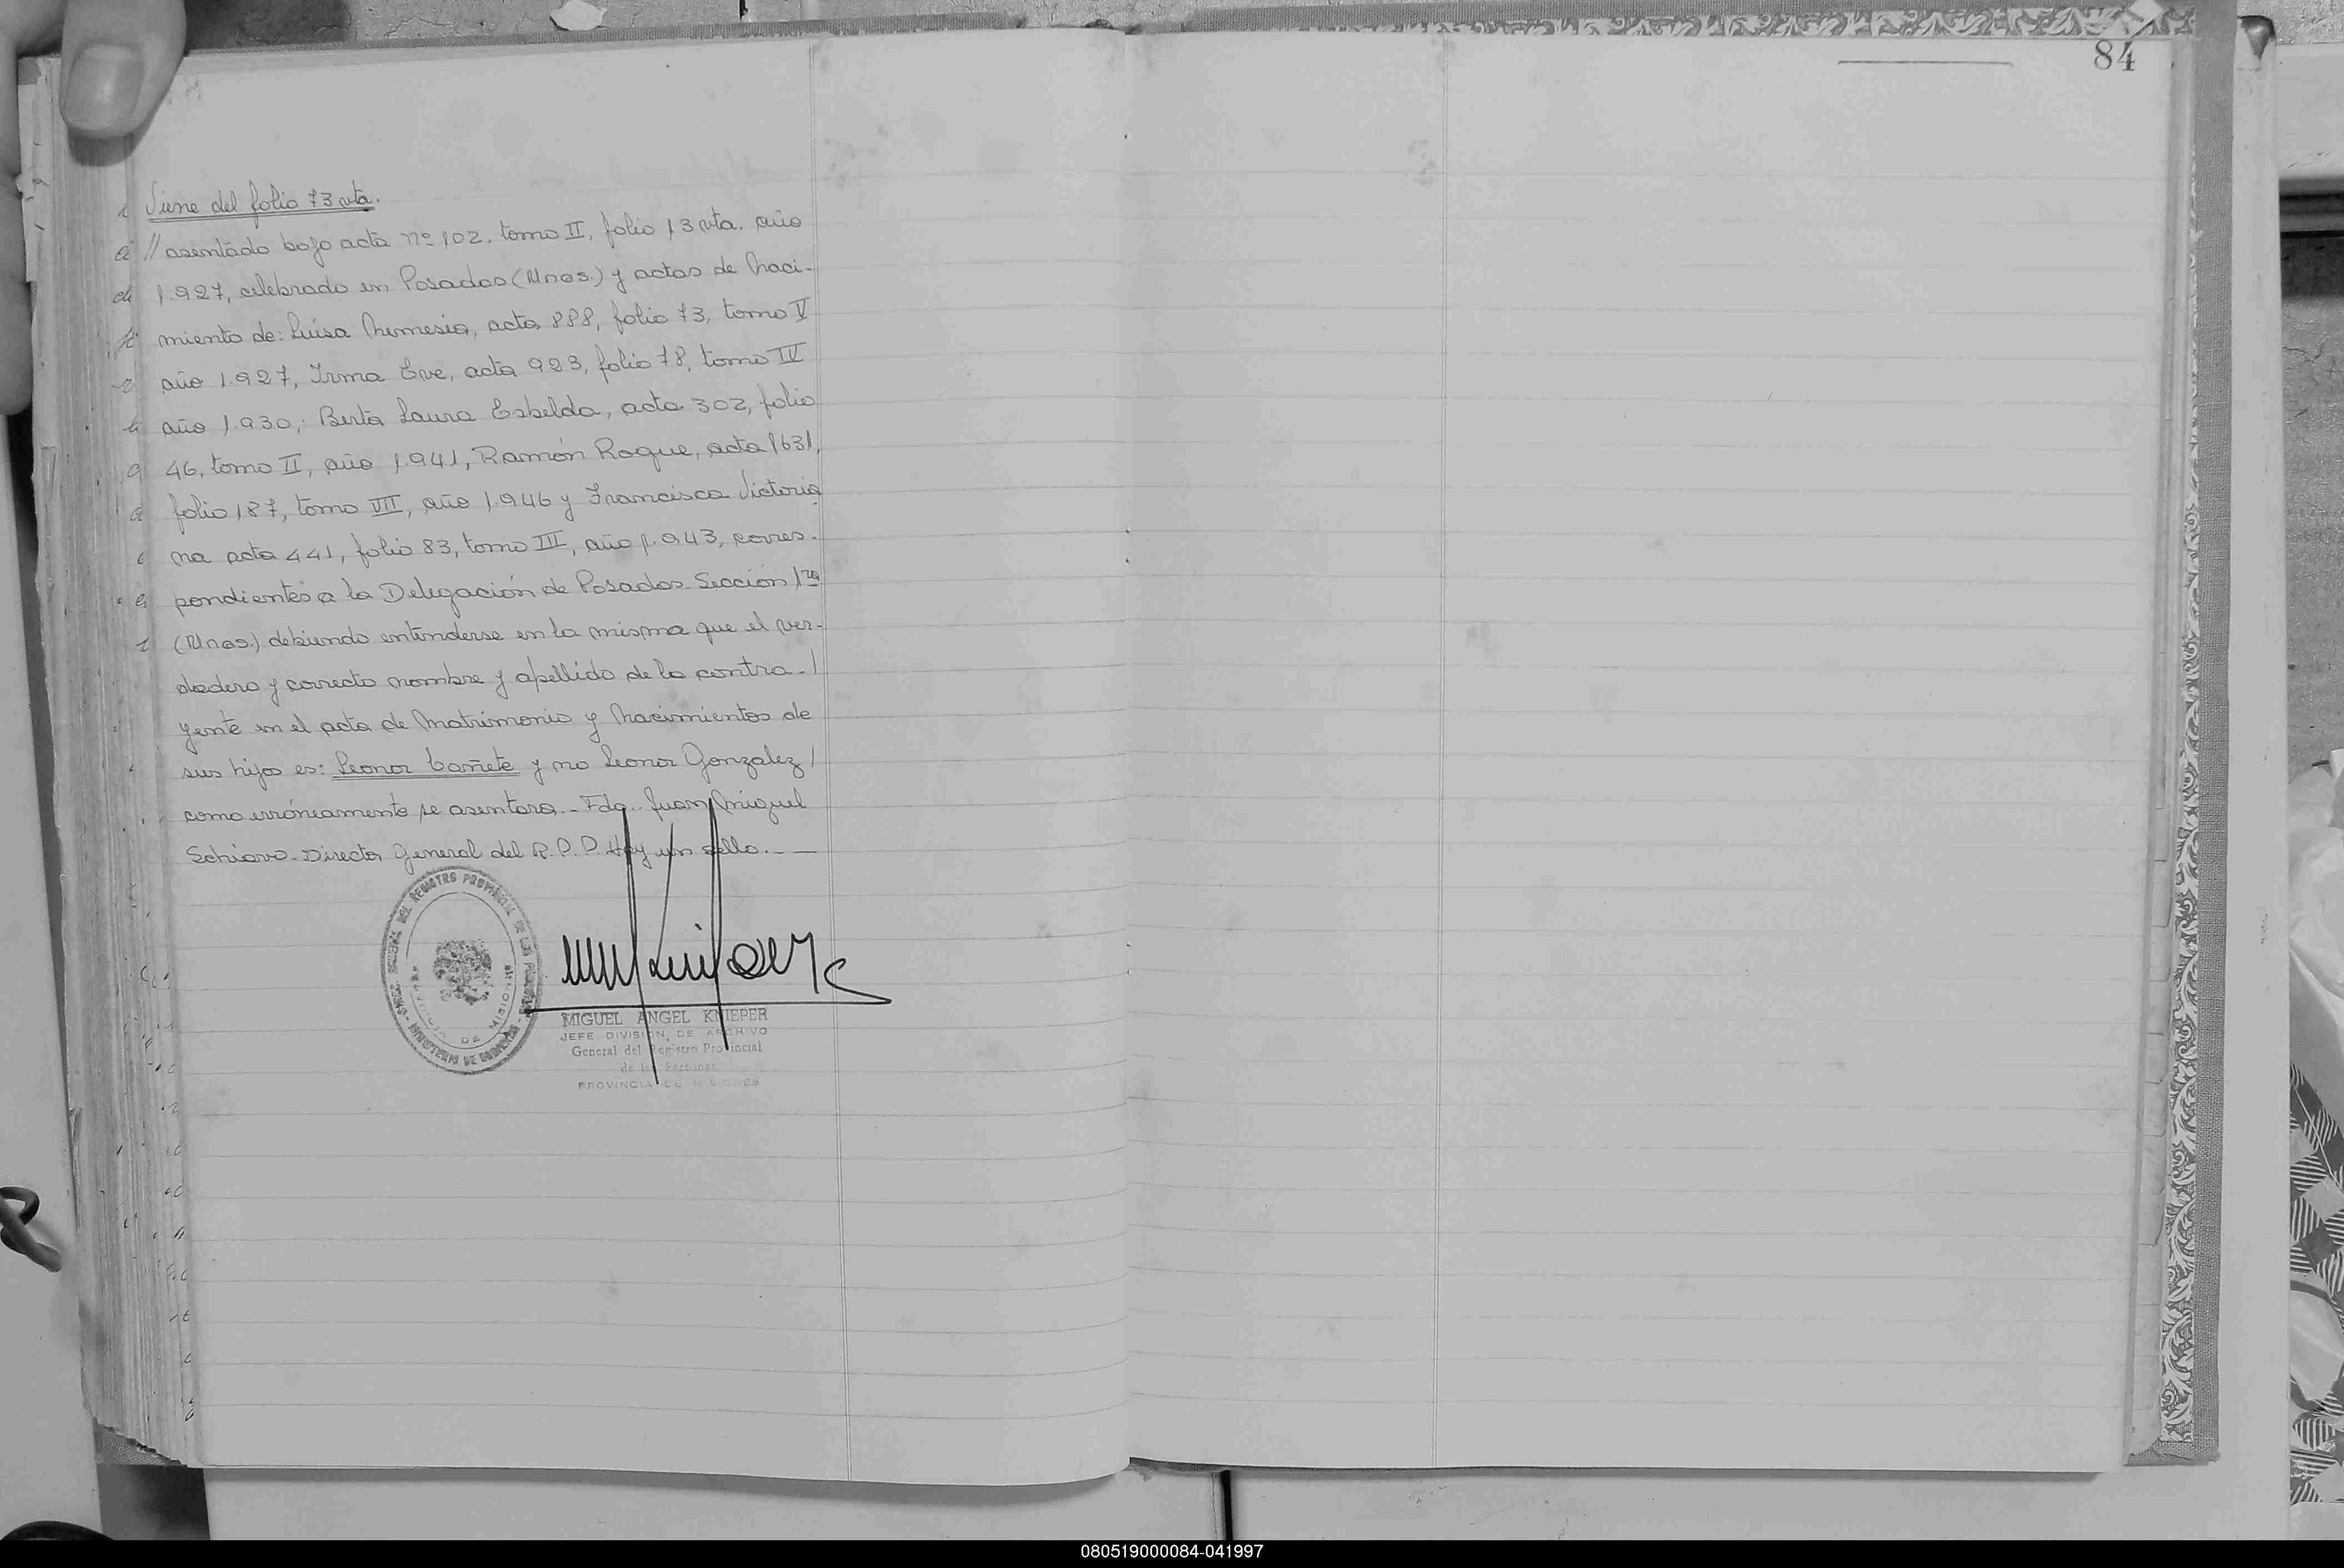 84
Viene del folio 73 vta.
// asentado bajo acta nº 102, tomo II, folio 13 vta. año
1.927, celebrado en Posadas (Mnes.) y actas de naci-
miento de: Luisa Nemesia, acta 888, folio 73, tomo V
año 1.927, Irma Eve, acta 923, folio 78, tomo IV
año 1.930; Berta Laura Esbelda, acta 302, folio
46, tomo II, año 1.941, Ramón Roque, acta 1631,
folio 187, tomo VII, año 1.946 y Francisca Victoria
na acta 441, folio 83, tomo III, año 1.943, corres-
pondientes a la Delegación de Posadas Sección 1ra
(Mnes.) debiendo entenderse en la misma que el ver-
dadero y correcto nombre y apellido de la contra-/
yente en el acta de Matrimonio y Nacimientos de
sus hijos es: Leonor Cañete y no Leonor Gonzalez /
como erróneamente se asentara.- Fdo. Juan Miguel
Schiavo-Director General del R.P.P. Hay un sello.-—
MIGUEL ANGEL KNIEPER
JEFE DIVISION DE ARCHIVO
General del Registro Provincial
de las Personas
PROVINCIA DE MISIONES
REGISTRO PROVINCIAL DE LAS PERSONAS
PROVINCIA DE MISIONES
MINISTERIO DE GOBIERNO
080519000084-041997